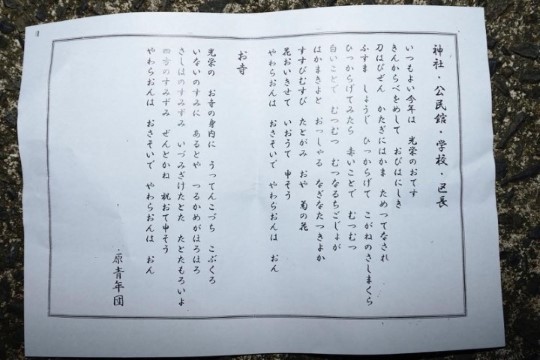 神社・公民館・学校・区長
いつもよい今年は　光栄のおてす
きんからべをめして　おびはにしき
刀はびぜん　かたぎにはかま　ためつてなされ
ふすま　しょうじ　ひっからげて　こがねのさしまくら
ひっからげてみたら　赤いことで　むつむつ
白いことで　むつむつ　むつなるちごじょが
はかまきよと　おっしゃる　なぎなたつきよか
すすびむすび　たとがみ　おや　菊の花
花おいきせて　いおうて　申そう
やわらおんは　おさそいで　やわらおんは　おん
お寺
光栄の　お寺の身内に　うってんこづち　こぶくろ
いないのすみに　あるとや　つるかめがほろほろ
さしはのすみずみ　いづみざけたとた　たとたもろいよ
四方のすみずみ　ぜんとかね　祝おて申そう
やわらおんは　おさそいで　やわらおんは　おん
原青年団